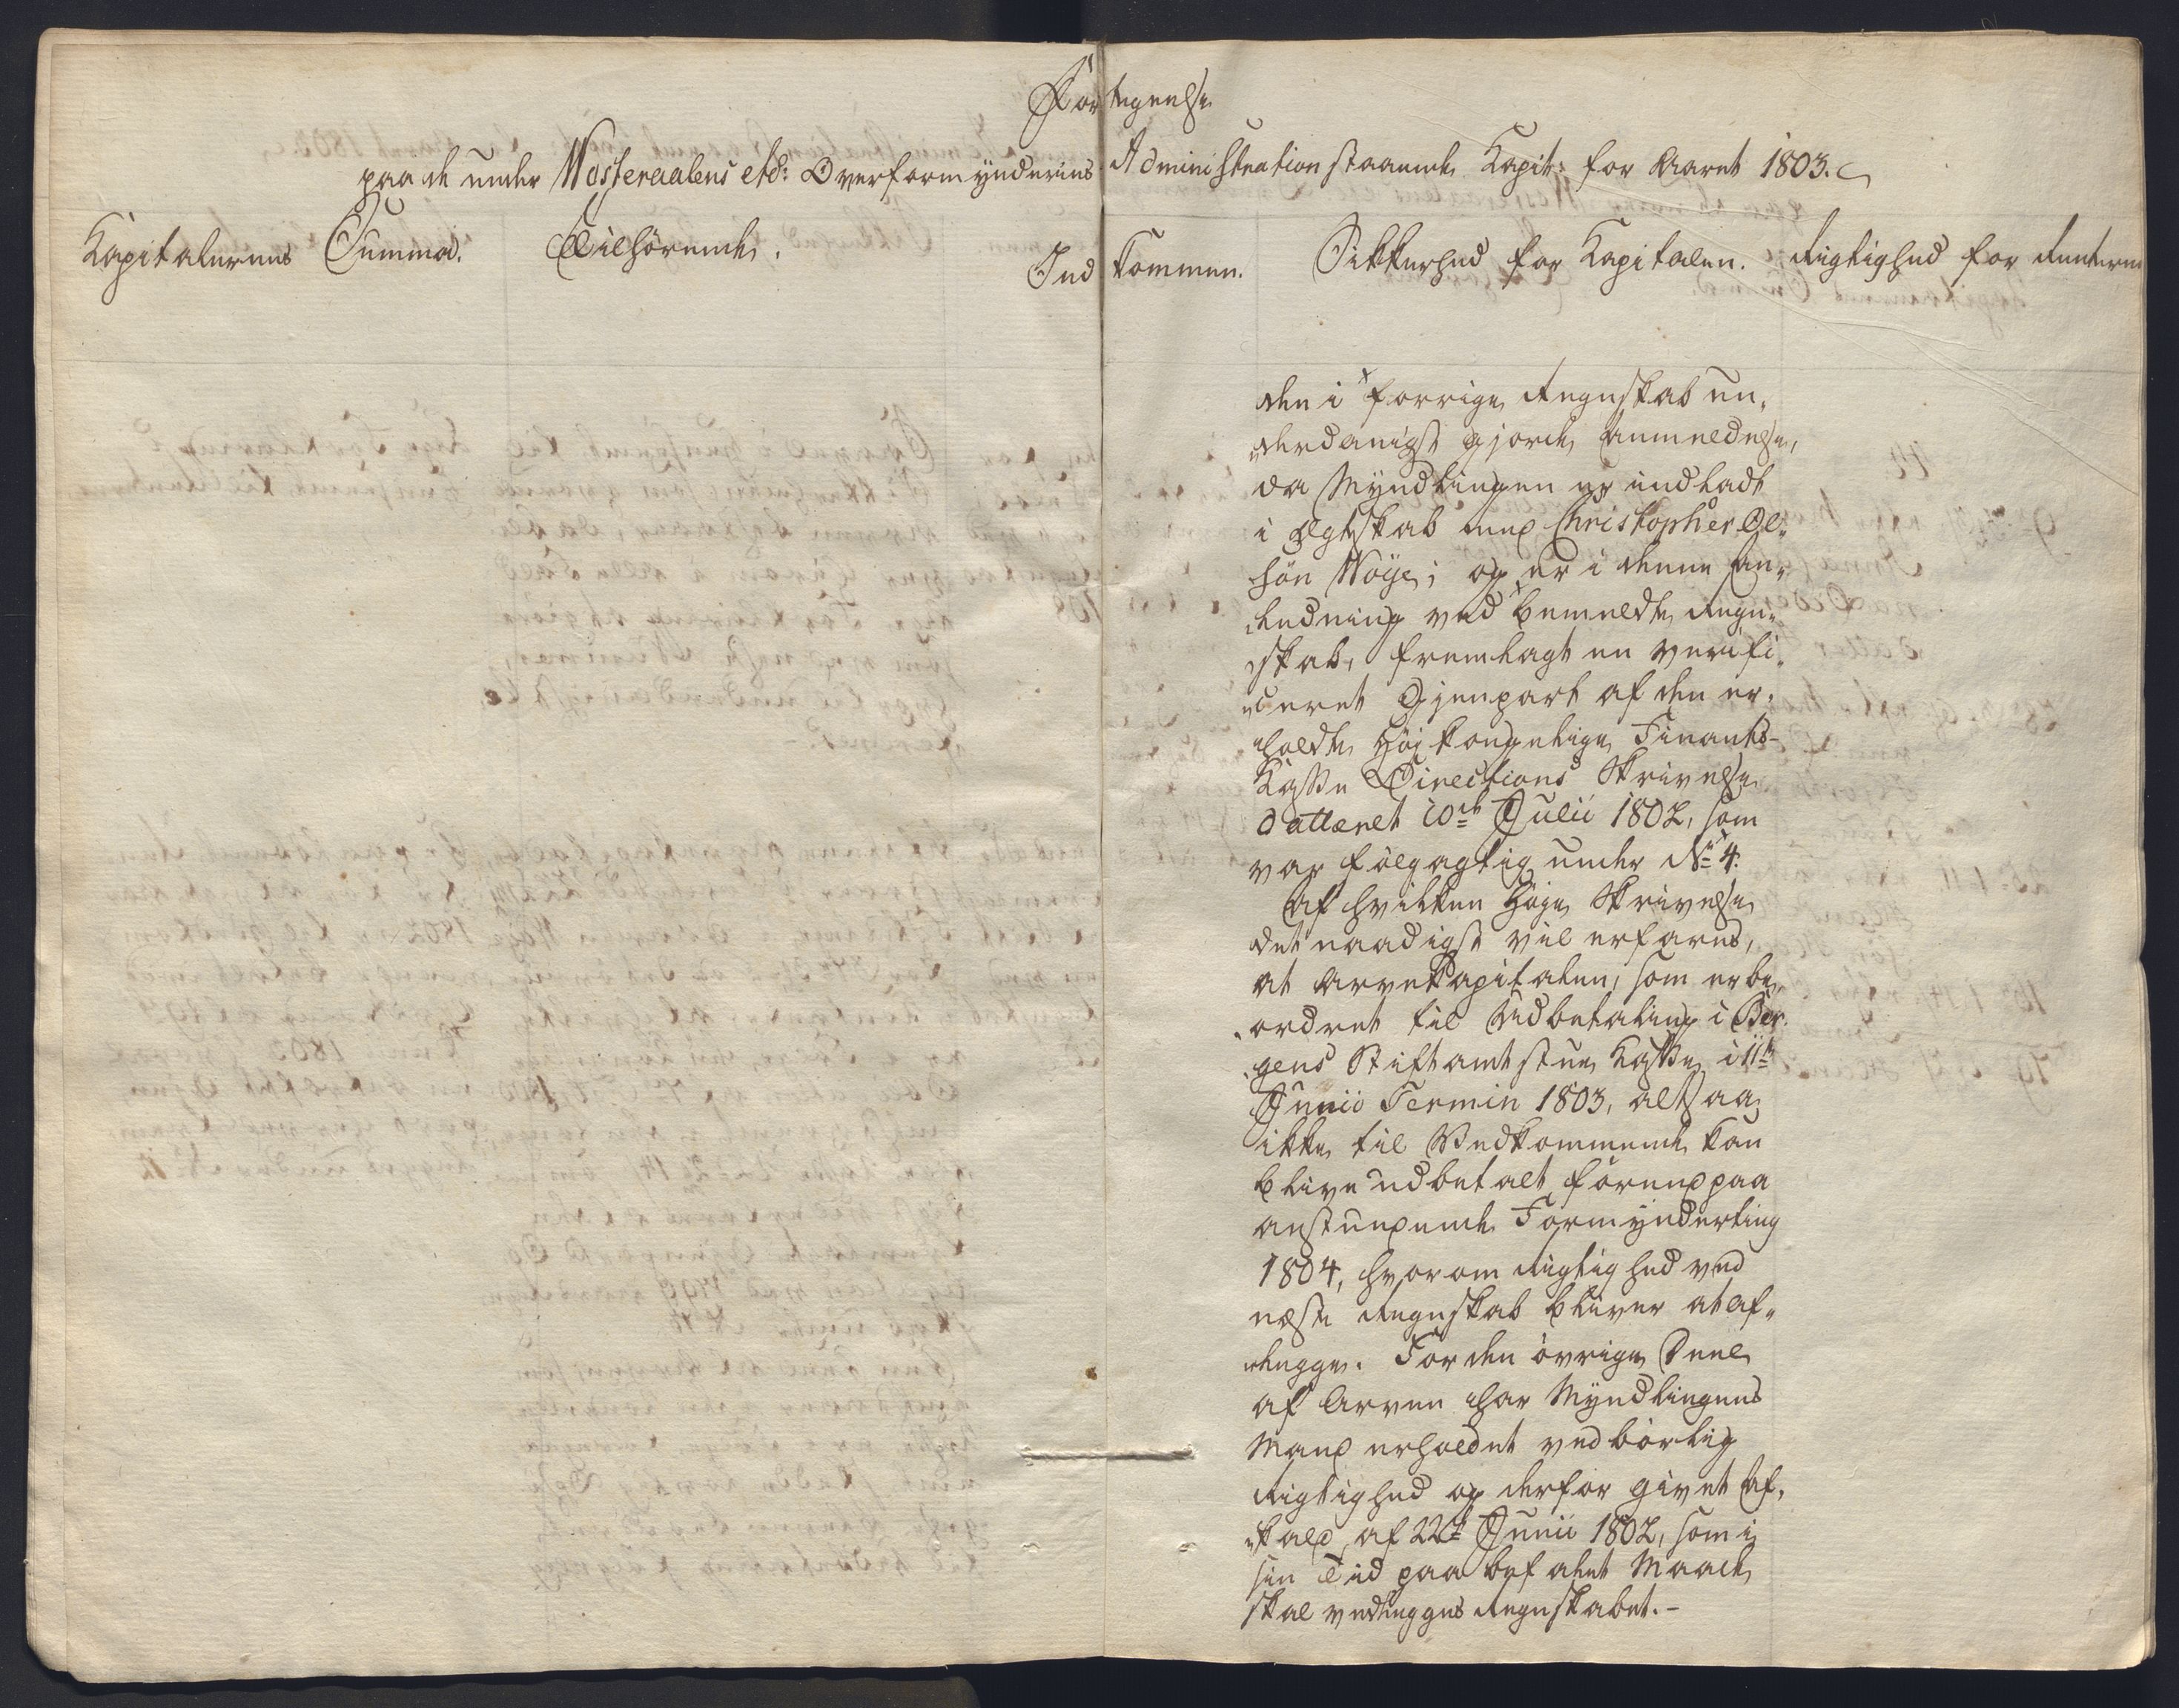 Fortegnelse
paa de under Westeraalens etc: Overformynderies Administration staaende Kapit: for Aaret 1803.
Kapitalernes Summa. Tilhørende. Indkommen. Sikkerhed for Kapitalen. Rigtighed for Renterne
den i forrige Regnskab un-
derdanigst gjorde Anmeldelse,
da Myndlingen er indladt
i Ægteskab med Christopher Ol-
sön Nöye; og er i denne An-
ledning ved bemeldte Regn-
skab, fremlagt en verifi-
ceret Gjenpart af den er-
holdte höj kongelige Finants-
Kasse Directions Skrivelse
datteret 10de Julii 1802, som
var følgagtig under No 4.
Af hvilken høje Skrivelse
det naadigst vil erfares,
at Arvekapitalen, som er be-
ordret til Udbetaling i Ber-
gens Stiftamtstue Kasse i 11te
Junii Termin 1803, altsaa
ikke til Vedkommende kan
blive udbetalt förend paa
anstundende Formynderting
1804, hvorom Rigtighed ved
næste Regnskab bliver at af-
legge. For den øvrige Deel
af Arven har Myndlingens
Mand erholdet vedbørlig
Rigtighed og derfor givet Af-
kald af 22de Junii 1802, som i
sin Tid paa befalet Maade
skal vedlegges Regnskabet.-